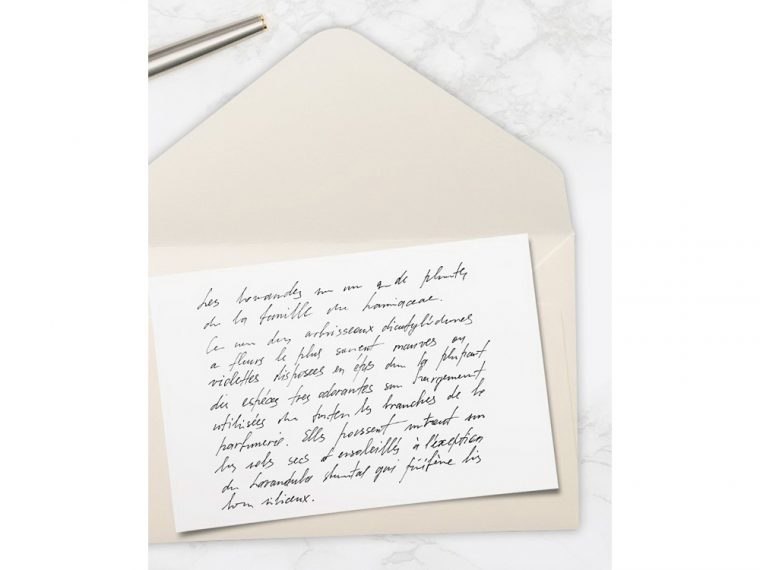 Les lavandes un de plantes
de la famille du Lamiaceae.
Ce arbrisseaux dicotylédones
a fleurs le plus souvent mauves ou
violettes disposées en épis la plupart
des espèces tres odorantes son largement
utilisées toutes les branches de la
parfumerie. Elles poussent surtout sur
les sols secs ensoleillés à l'exception
du Lavandula préfère les
siliceux.